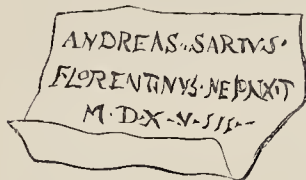 ANDREAS·SARTVS·
FLORENTINVS·ME PINXIT
M·D·X·V·III·